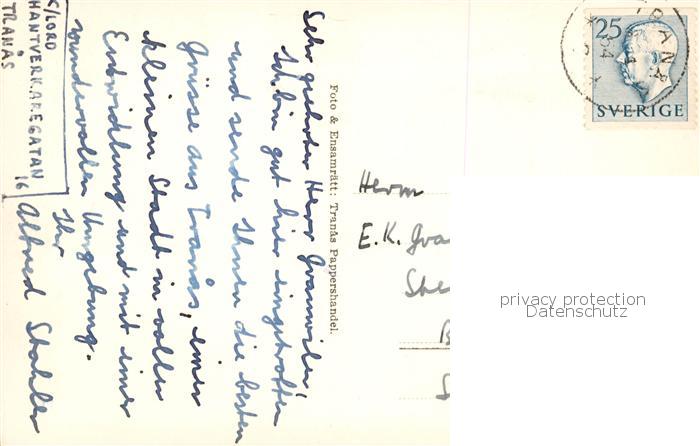 C/LORD
HANTVERKAREGATAN
16
TRANÅS
Sehr geehrter Herr Granwiler,
Ich bin gut hier eingetroffen
und sende Ihnen die besten
Grüsse aus Tranås, einer
kleinen Stadt in voller
Entwicklung und mit einer
wundervollen Umgebung.
Ihr
Alfred Stahler
Foto & Ensamrätt: Tranås Pappershandel.
25
SVERIGE
Herrn
E.K. Gra
privacy protection
Datenschutz